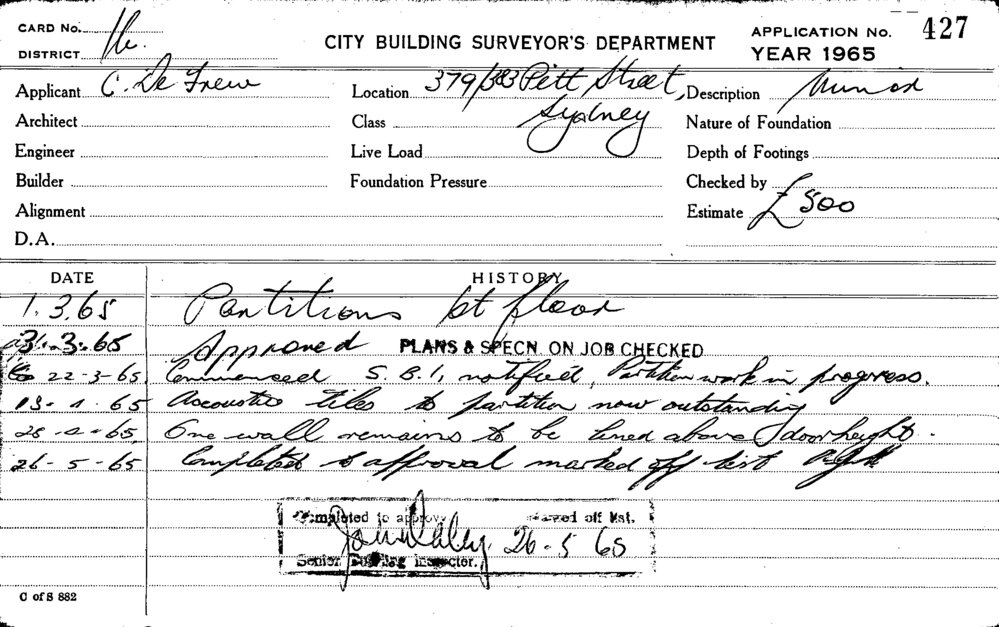 CARD No. He.
DISTRICT
CITY BUILDING SURVEYOR'S DEPARTMENT
APPLICATION No. 427
YEAR 1965
Applicant C. De Frew
Location 379/383 Pitt Street,
Sydney
Description Minor
Architect
Class
Nature of Foundation
Engineer
Live Load
Depth of Footings
Builder
Foundation Pressure
Checked by
Alignment
Estimate £ 500
D.A.
DATE HISTORY
1.3.65 Partitions 1st floor
3.3.65 Approved PLANS & SPECN. ON JOB CHECKED
22-3-65 Commenced S.B.I. notified, Partition work in progress.
13.4.65 Accoustic tiles to partition now outstanding
28-4-65 One wall remains to be lined above door height.
26-5-65 Completed to approval marked off list
Completed to approv off list.
John Daley 26-5 65
Senior Building Inspector.
C of S 882